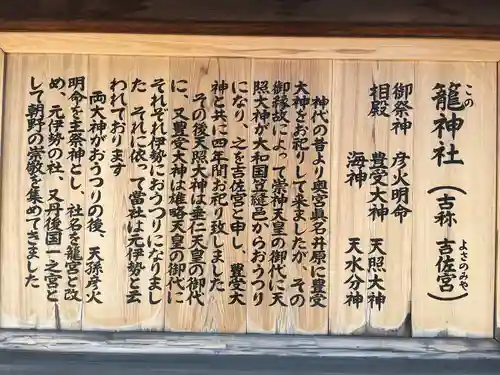 籠神社（古称 吉佐宮）
この
よさのみや
御祭神 彦火明命
相殿 豊受大神 天照大神
海神 天水分神
神代の昔より奥宮真名井原に豊受
大神をお祀りして来ましたが、その
御縁故によって崇神天皇の御代に天
照大神が大和国笠縫邑からおうつり
になり、之を吉佐宮と申し、豊受大
神と共に四年間お祀り致しました
その後天照大神は垂仁天皇の御代
に、又豊受大神は雄略天皇の御代に
それぞれ伊勢におうつりになりまし
た それに依って当社は元伊勢と云
われております
両大神がおうつりの後、天孫彦火
明命を主祭神とし、社名を籠宮と改
め、元伊勢の社、又丹後国一之宮と
して朝野の崇敬を集めてきました